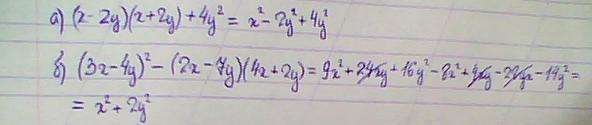 а) (x-2y)(x+2y)+4y² = x²-2y²+4y²
б) (3x-4y)² - (2x-7y)(4x+2y) = 9x²+24xy+16y²-8x²+4xy-28yx-14y² =
= x²+2y²